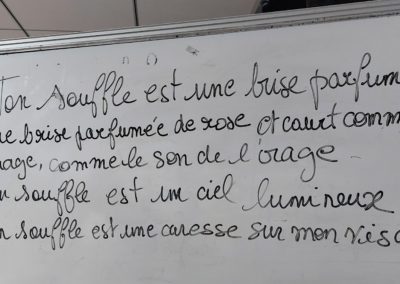 Ton souffle est une brise parfum
ne brise parfumée de rose et court comm
rage, comme le son de l'orage
n souffle est un ciel lumineux
n souffle est une caresse sur mon visa